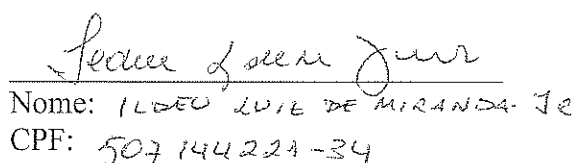 Nome: ILDEU LUIZ DE MIRANDA JR
CPF: 507144221-34